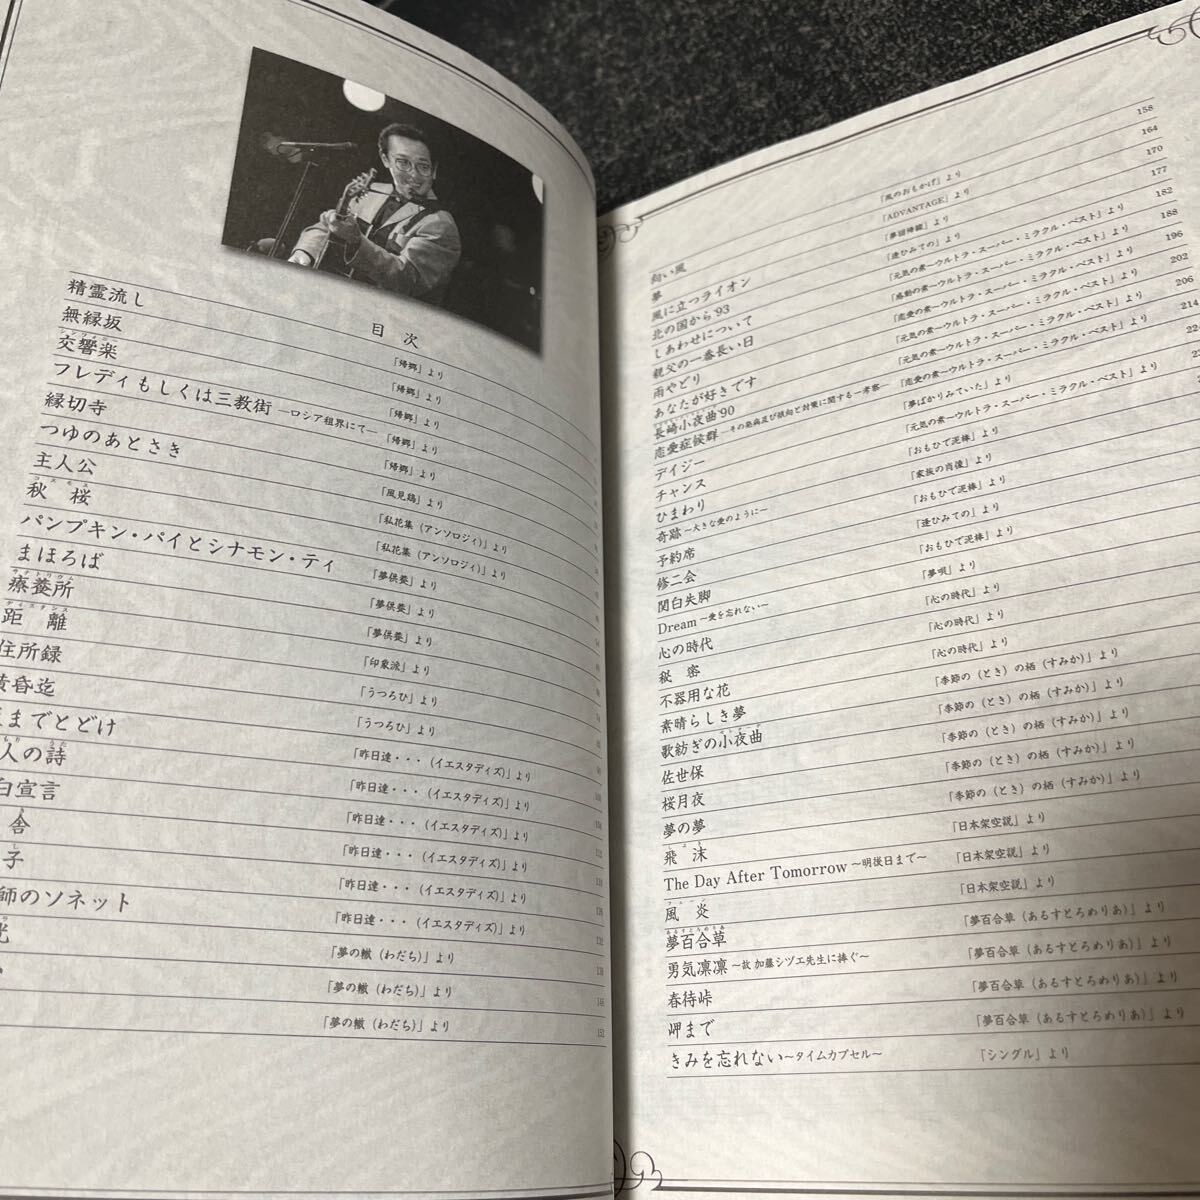 目次
精霊流し 「帰郷」より
無縁坂 「帰郷」より
交響楽 「帰郷」より
フレディもしくは三教街 ―ロシア租界にて― 「帰郷」より
縁切寺 「帰郷」より
つゆのあとさき 「風見鶏」より
主人公 「私花集（アンソロジィ）」より
秋桜 「私花集（アンソロジィ）」より
パンプキン・パイとシナモン・ティ 「夢供養」より
まほろば 「夢供養」より
療養所 「夢供養」より
距離 「印象派」より
住所録 「うつろひ」より
黄昏迄 「うつろひ」より
までとどけ 「昨日達・・・（イエスタデイズ）」より
人の詩 「昨日達・・・（イエスタデイズ）」より
白宣言 「昨日達・・・（イエスタデイズ）」より
舎 「昨日達・・・（イエスタデイズ）」より
子 「昨日達・・・（イエスタデイズ）」より
師のソネット 「昨日達・・・（イエスタデイズ）」より
「夢の轍（わだち）」より
「夢の轍（わだち）」より
「夢の轍（わだち）」より 152
匂い風 「風のおもかげ」より 158
夢 「ADVANTAGE」より 164
風に立つライオン 「夢回帰線」より 170
北の国から'93 「逢ひみての」より 177
しあわせについて 「元気の素～ウルトラ・スーパー・ミラクル・ベスト」より 182
親父の一番長い日 「感動の素～ウルトラ・スーパー・ミラクル・ベスト」より 188
雨やどり 「恋愛の素～ウルトラ・スーパー・ミラクル・ベスト」より 196
あなたが好きです 「元気の素～ウルトラ・スーパー・ミラクル・ベスト」より 202
長崎小夜曲'90 「元気の素～ウルトラ・スーパー・ミラクル・ベスト」より 206
恋愛症候群 ―その発病及び傾向と対策に関する一考察― 「恋愛の素～ウルトラ・スーパー・ミラクル・ベスト」より 214
デイジー 「夢ばかりみていた」より
チャンス 「元気の素～ウルトラ・スーパー・ミラクル・ベスト」より
ひまわり 「おもひで泥棒」より
奇跡 ～大きな愛のように～ 「家族の肖像」より
予約席 「おもひで泥棒」より
修二会 「逢ひみての」より
関白失脚 「おもひで泥棒」より
Dream ～愛を忘れない～ 「夢唄」より
心の時代 「心の時代」より
秘密 「心の時代」より
不器用な花 「心の時代」より
素晴らしき夢 「季節の（とき）の栖（すみか）」より
歌紡ぎの小夜曲 「季節の（とき）の栖（すみか）」より
佐世保 「季節の（とき）の栖（すみか）」より
桜月夜 「季節の（とき）の栖（すみか）」より
夢の夢 「季節の（とき）の栖（すみか）」より
飛沫 「日本架空説」より
The Day After Tomorrow ～明後日まで～ 「日本架空説」より
風炎 「日本架空説」より
夢百合草 「夢百合草（あるすとろめりあ）」より
勇気凛凛 ～故 加藤シヅエ先生に捧ぐ～ 「夢百合草（あるすとろめりあ）」より
春待峠 「夢百合草（あるすとろめりあ）」より
岬まで 「夢百合草（あるすとろめりあ）」より
きみを忘れない～タイムカプセル～ 「シングル」より